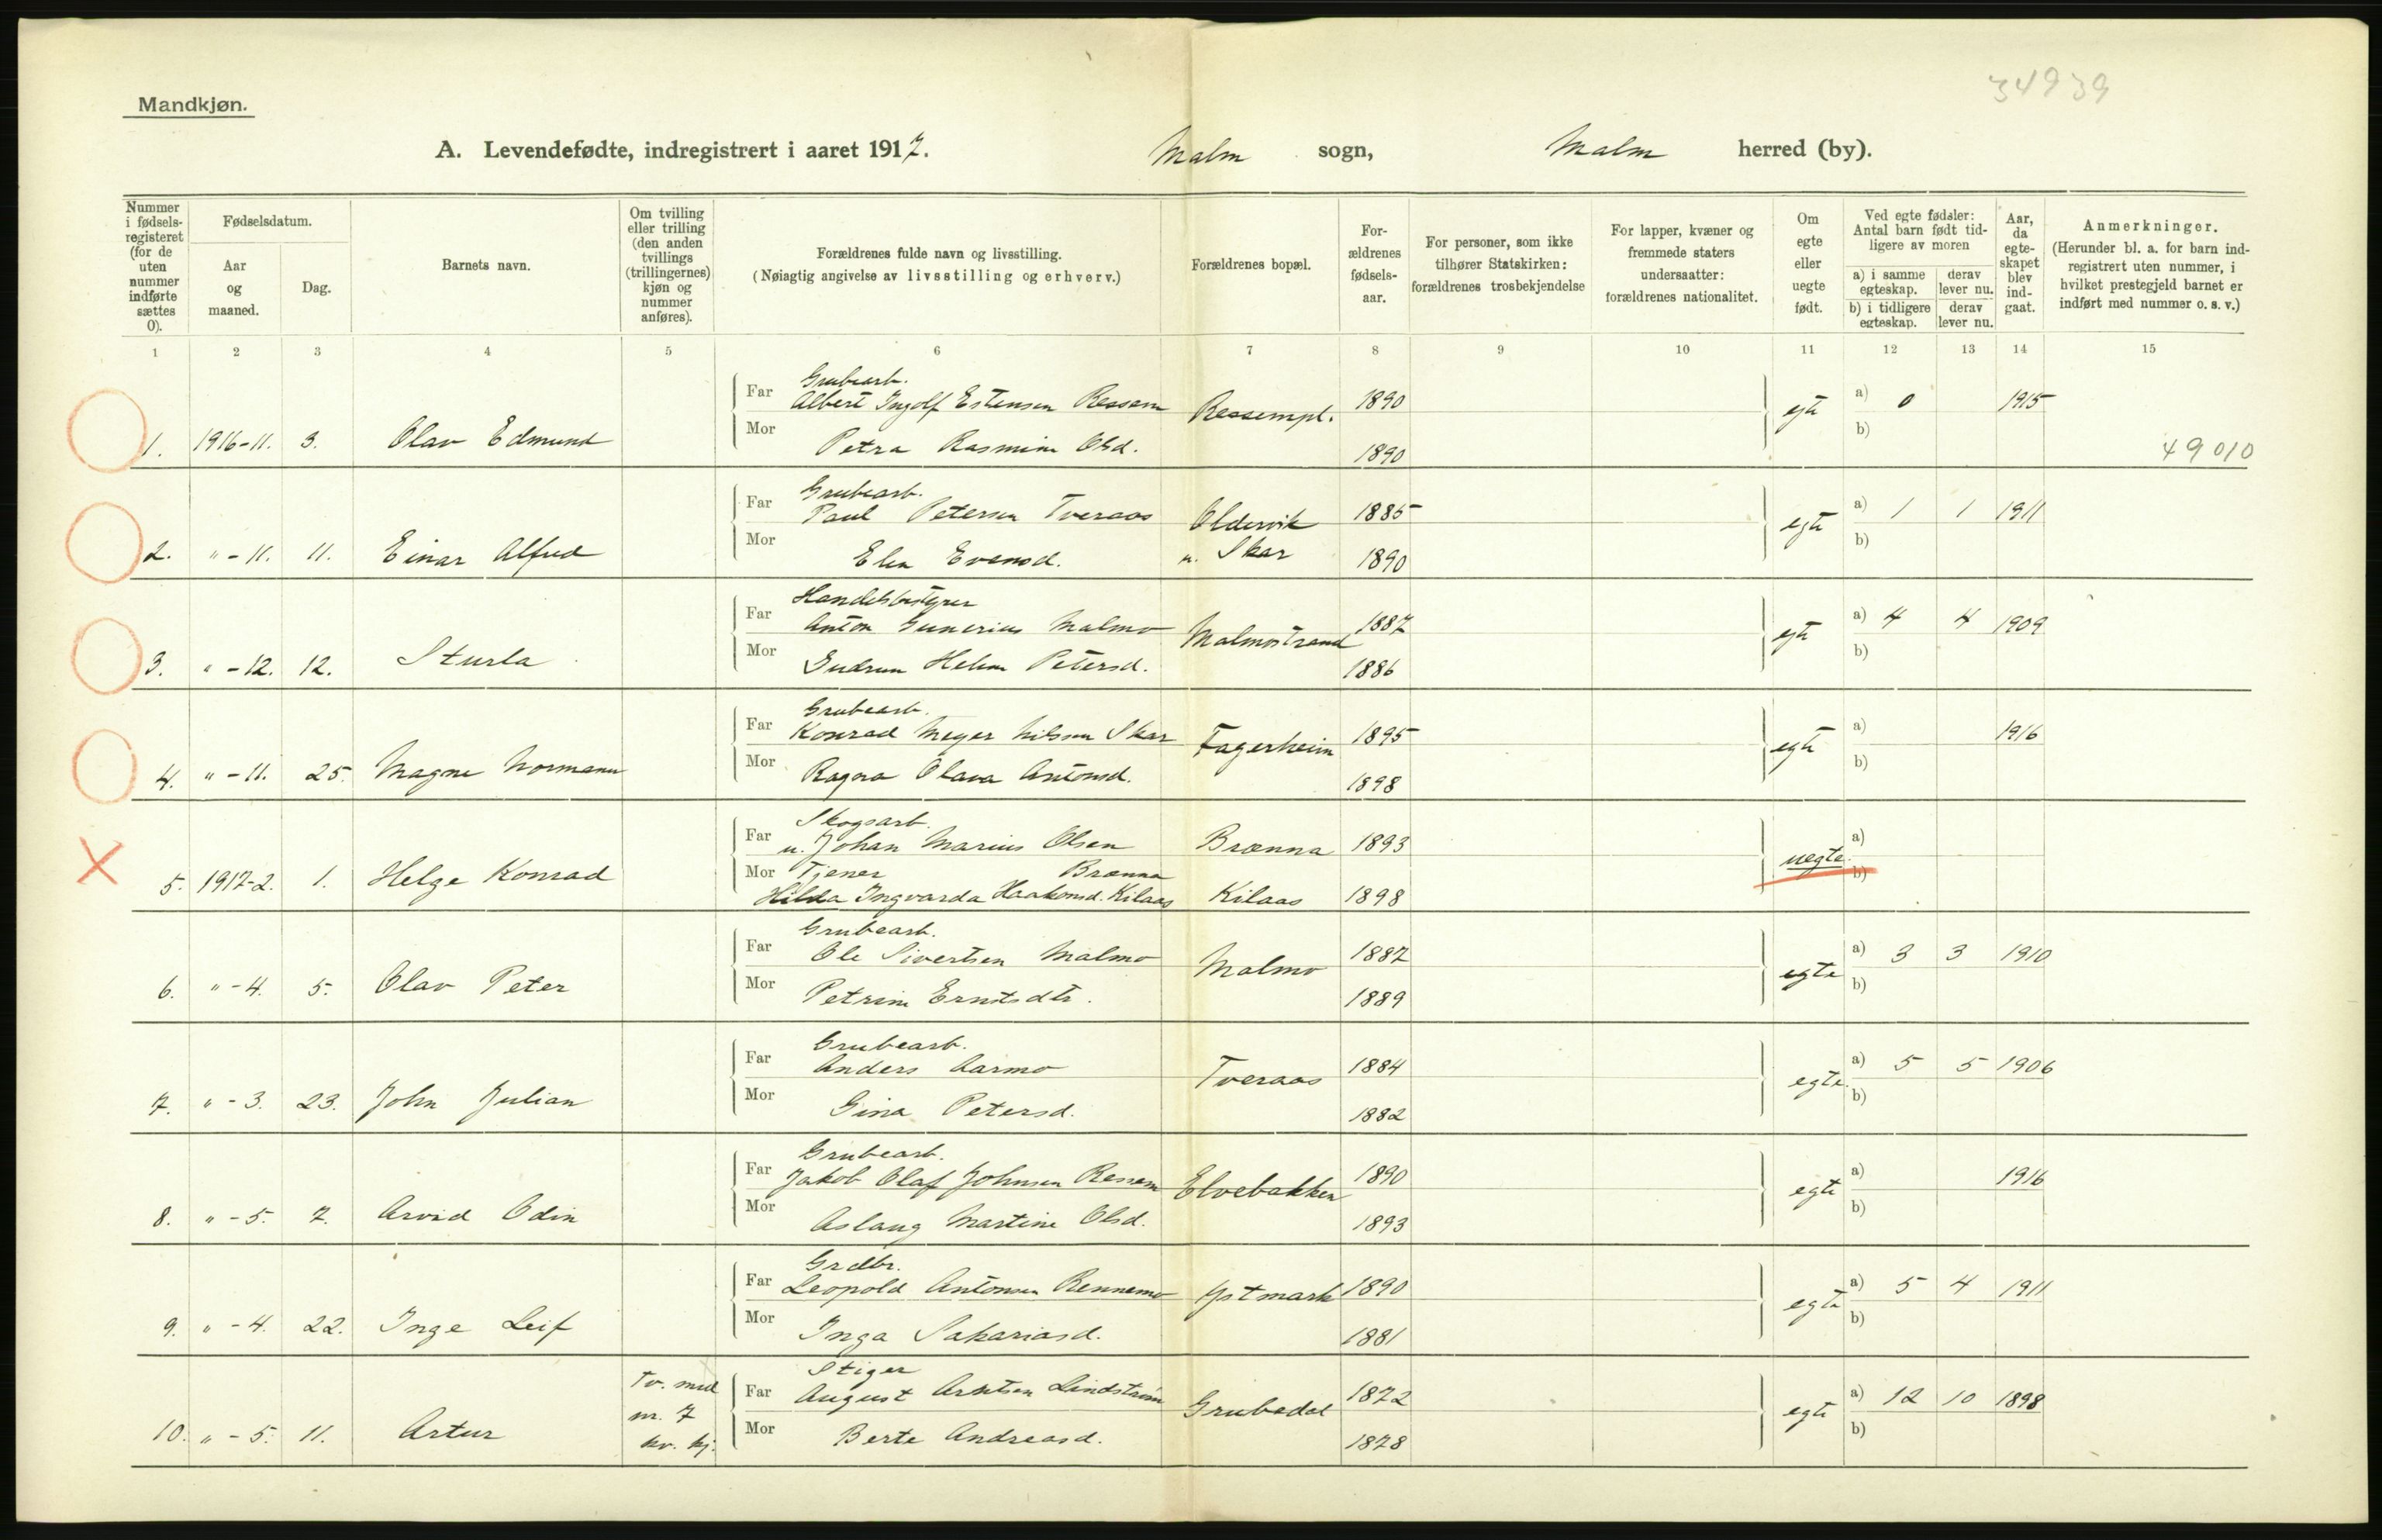 34939
Mandkjøn.
A. Levendefødte, indregistrert i aaret 1917. Malm sogn, Malm herred (by).
Nummer i fødselsregisteret (for de uten nummer indførte sættes 0).
Fødselsdatum.
Aar og maaned.
Dag.
Barnets navn.
Om tvilling eller trilling (den anden tvillings (trillingernes) kjøn og nummer anføres).
Forældrenes fulde navn og livsstilling.
(Nøiagtig angivelse av livsstilling og erhverv.)
Forældrenes bopæl.
Forældrenes fødselsaar.
For personer, som ikke tilhører Statskirken: forældrenes trosbekjendelse
For lapper, kvæner og fremmede staters undersaatter: forældrenes nationalitet.
Om egte eller uegte født.
Ved egte fødsler: Antal barn født tidligere av moren
a) i samme egteskap.
derav lever nu.
b) i tidligere egteskap.
derav lever nu.
Aar, da egteskapet blev indgaat.
Anmerkninger.
(Herunder bl. a. for barn indregistrert uten nummer, i hvilket prestegjeld barnet er indført med nummer o. s. v.)
1 2 3 4 5 6 7 8 9 10 11 12 13 14 15
Grubearb.
Far Albert Ingolf Estensen Ressem Ressempl. 1890 egte a) 0 1915
1. 1916-11. 3. Olav Edmund Mor Petra Rasmine Olsd. 1890 b) 49010
Grubearb.
Far Paul Petersen Tveraas Oldervik 1885 egte a) 1 1 1911
2. " - 11. 11. Einar Alfred Mor Elen Evensd. u. Skar 1890 b)
Handelsbestyrer
Far Anton Gunerius Malmo Malmostrand 1887 egte a) 4 4 1909
3. " - 12. 12. Sturla Mor Gudrun Helene Petersd. 1886 b)
Grubearb.
Far Konrad Meyer Nilssen Skar Fagerheim 1895 egte a) 1916
4. " - 11. 25. Magne Normann Mor Ragna Olava Antonsd. 1898 b)
Skogsarb.
Far u. Johan Marius Olsen Brænna Brænna 1893 uegte. a)
5. 1917-2. 1. Helge Konrad Mor Tjener Hilda Ingvarda Haakonsd. Kilaas Kilaas 1898 b)
Grubearb.
Far Ole Sivertsen Malmo Malmo 1887 egte a) 3 3 1910
6. " - 4. 5. Olav Peter Mor Petrine Ernstsdtr. 1889 b)
Grubearb.
Far Anders Aarmo Tveraas 1884 egte. a) 5 5 1906
7. " - 3. 23. John Julian Mor Gina Petersd. 1882 b)
Grubearb.
Far Jakob Olaf Johnsen Ressem Elvebakken 1890 egte a) 1916
8. " - 5. 7. Arvid Odin Mor Aslaug Martine Olsd. 1893 b)
Grdbr.
Far Leopold Antonsen Rennemo Ystmark 1890 egte a) 5 4 1911
9. " - 4. 22. Inge Leif Mor Inga Sakariasd. 1881 b)
Stiger
Tv. med nr. 7 kv. kj. Far August Arntsen Lindstrøm Grubedal 1872 egte a) 12 10 1898
10. " - 5. 11. Artur Mor Berte Andreasd. 1878 b)